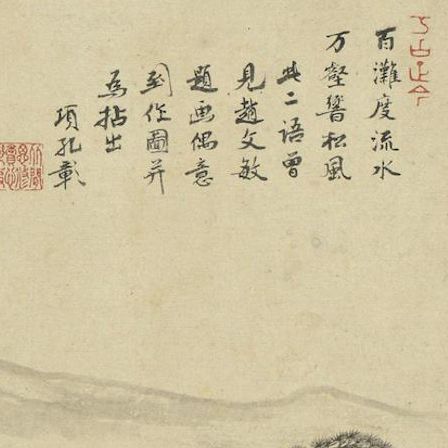 百灘度流水
万壑響松風
此二語曾
見趙文敏
題画偶意
到作圖并
為拈出
項孔彰